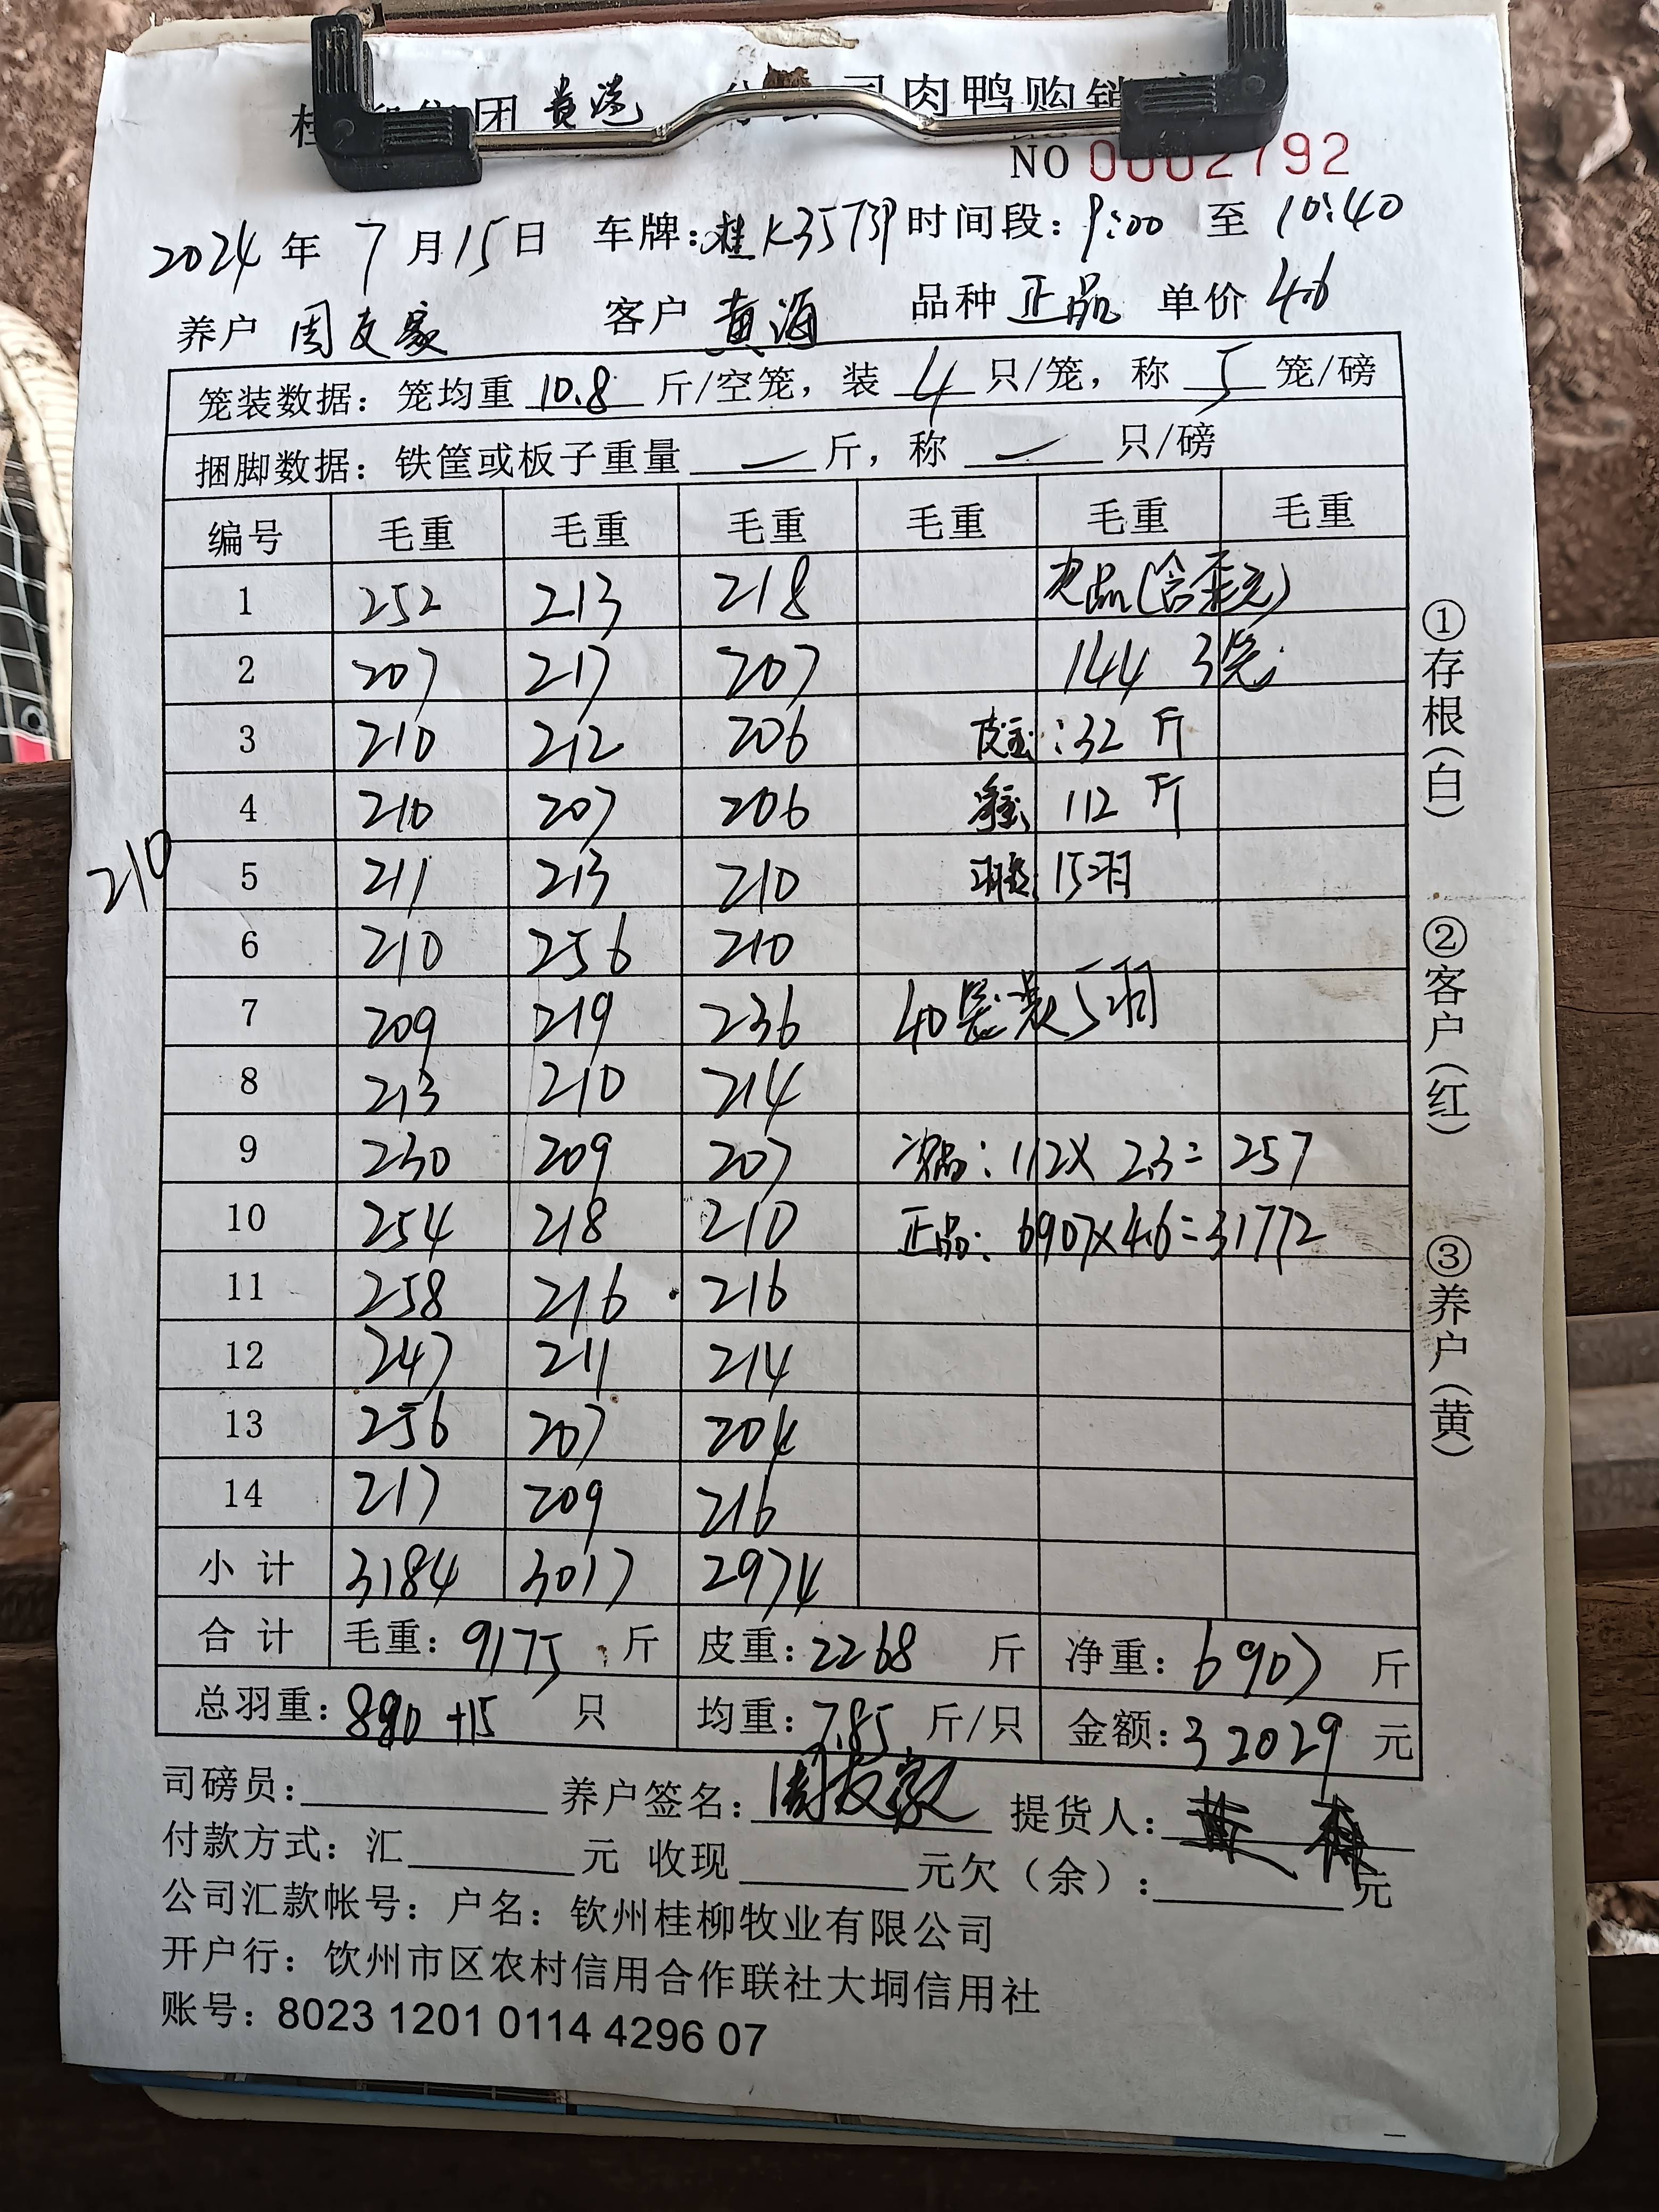 团 贵港 肉鸭购销
NO 0002792
2024 年 7 月 15 日 车牌: 桂K357 时间段: 9:00 至 10:40
养户 周友家 客户 黄海 品种 正品 单价 4.6
笼装数据: 笼均重 10.8 斤/空笼, 装 4 只/笼, 称 5 笼/磅
捆脚数据: 铁筐或板子重量 — 斤, 称 — 只/磅
编号 毛重 毛重 毛重 毛重 毛重 毛重
1 252 213 218 次品(含歪壳)
2 207 217 207 144 3笼
3 210 212 206 皮重:32 斤
4 210 207 206 净重 112 斤
210 5 211 213 210 羽数 15羽
6 210 256 210
7 209 219 236 40笼装5羽
8 213 210 214
9 230 209 207 次品: 112×2.3=257
10 254 218 210 正品: 6907×4.6=31772
11 258 216 216
12 247 211 214
13 256 207 204
14 217 209 216
小计 3184 3017 2974
合计 毛重: 9175 斤 皮重: 2268 斤 净重: 6907 斤
总羽重: 880+15 只 均重: 7.85 斤/只 金额: 32029 元
司磅员: 养户签名: 周友家 提货人:
付款方式: 汇 元 收现 元欠(余): 元
公司汇款帐号: 户名: 钦州桂柳牧业有限公司
开户行: 钦州市区农村信用合作联社大垌信用社
账号: 8023 1201 0114 4296 07
①存根(白)
②客户(红)
③养户(黄)